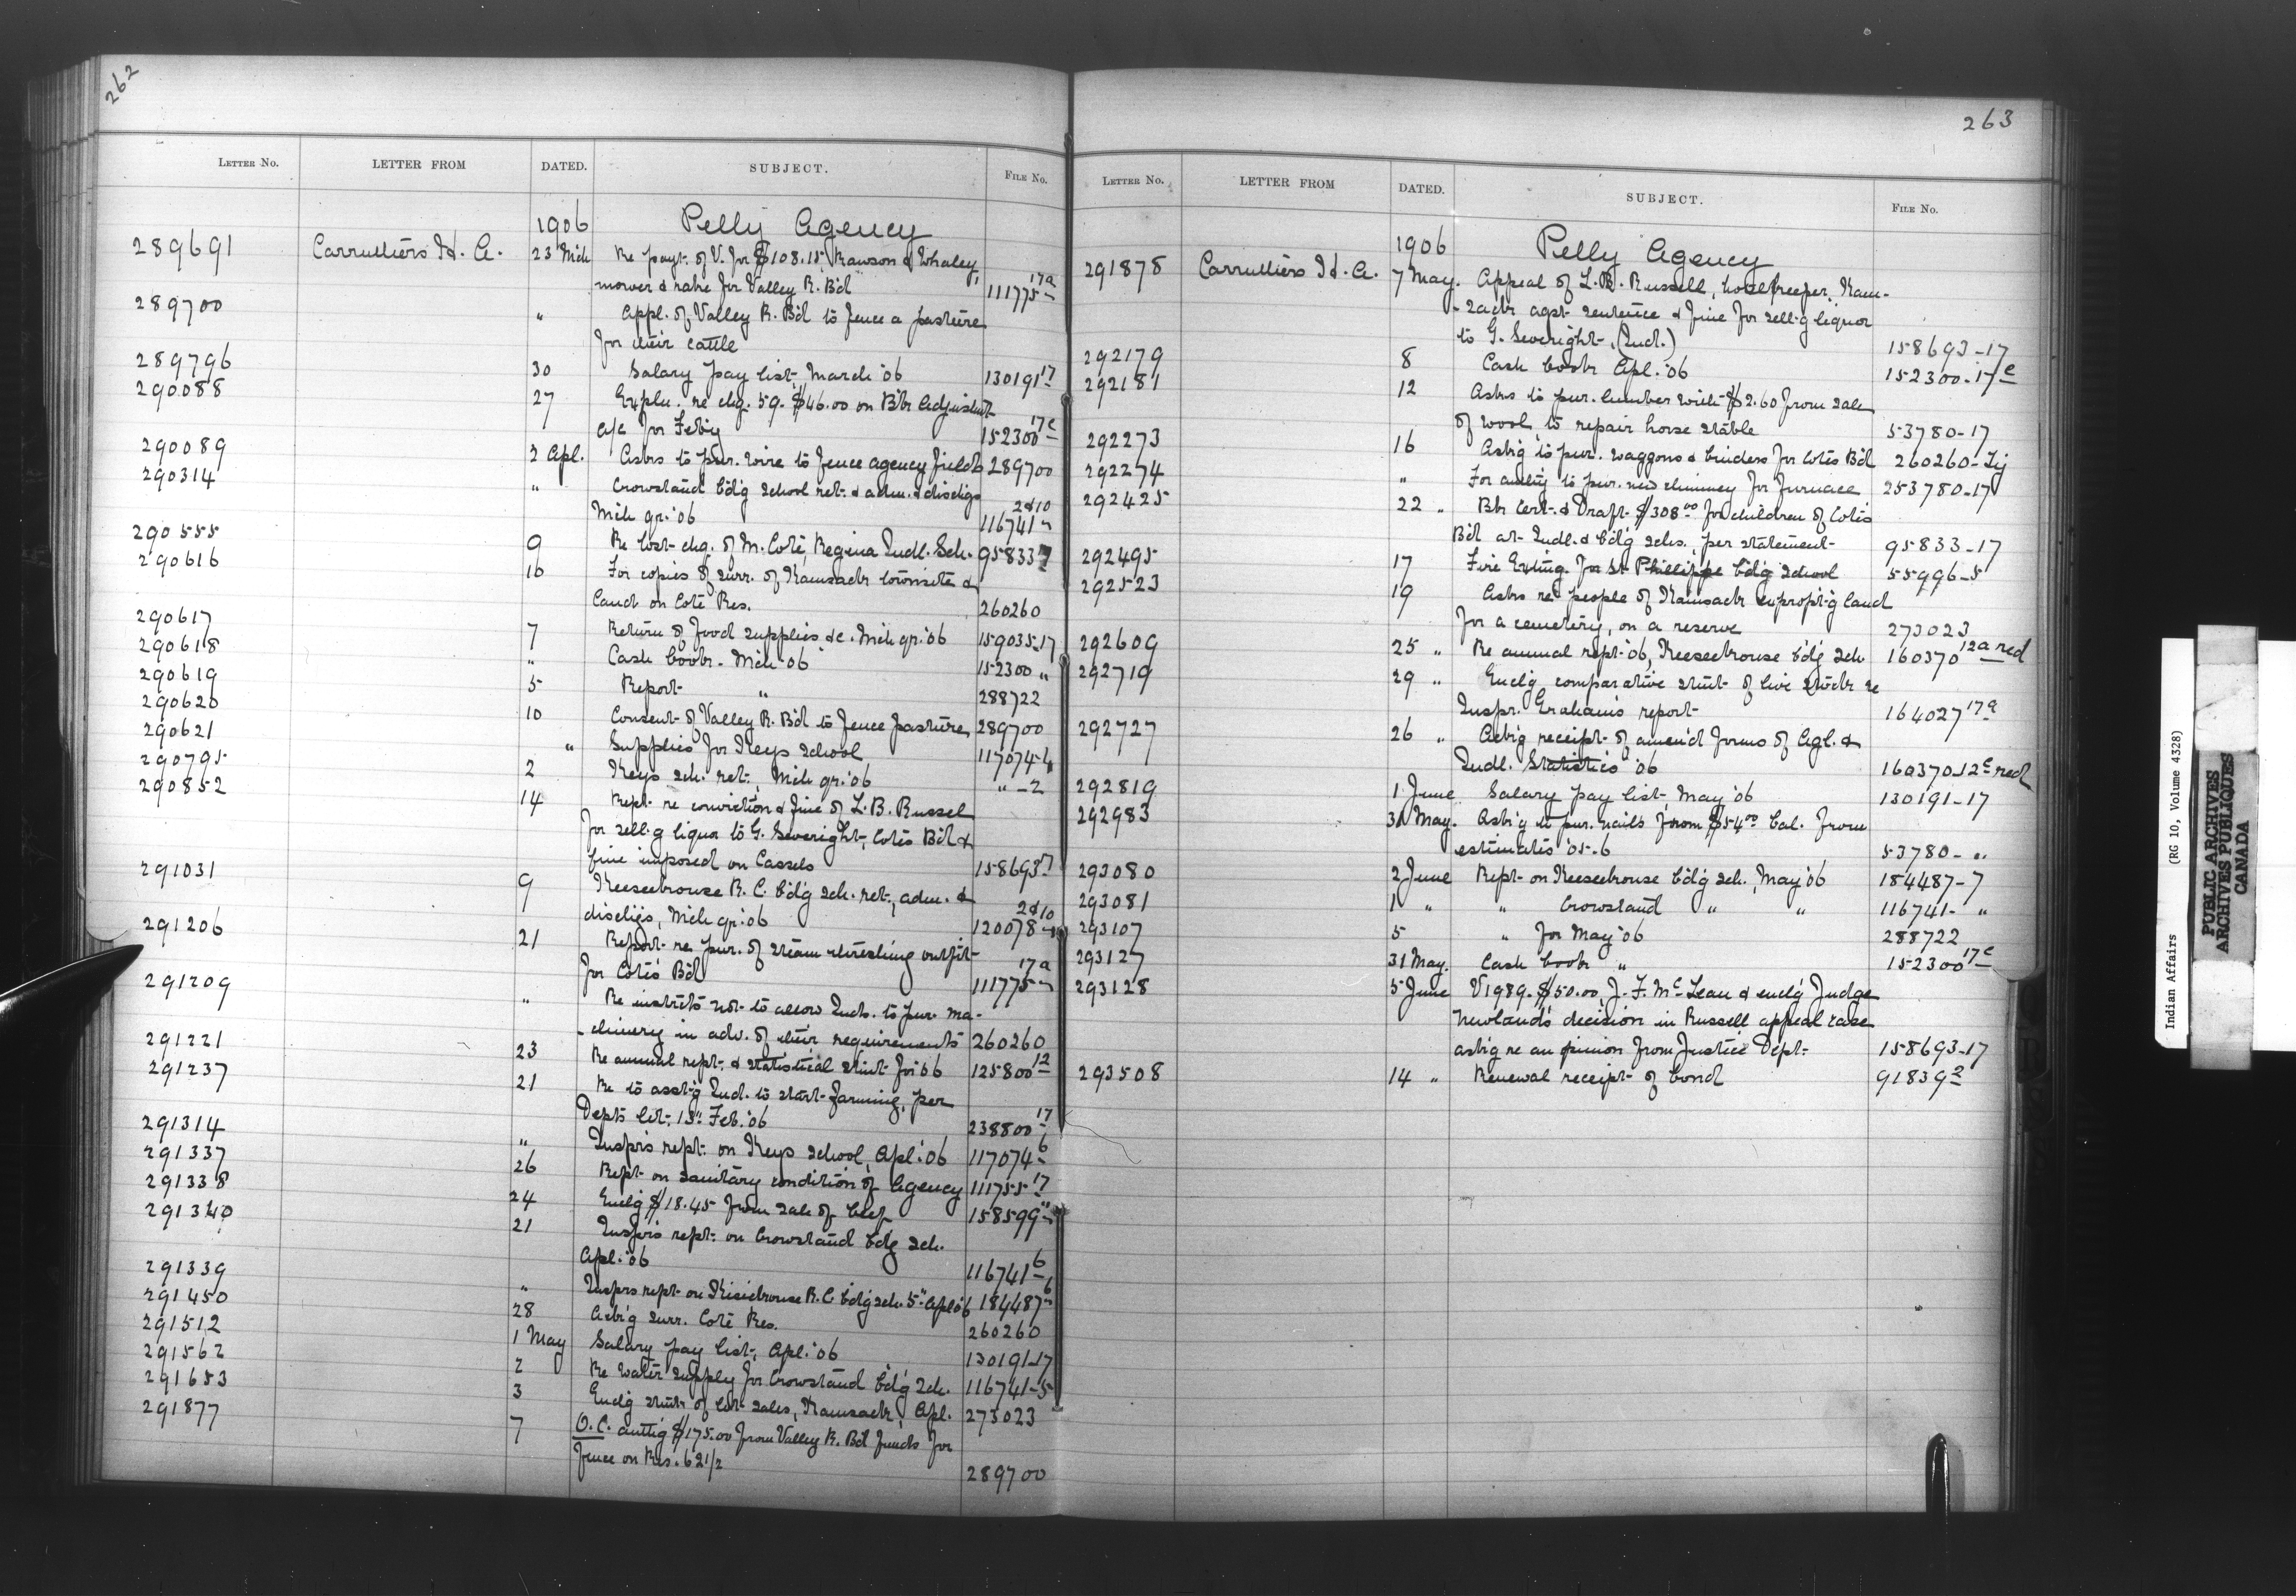 262
LETTER No. LETTER FROM DATED. SUBJECT. FILE No.
1906 Pelly Agency
289691 Carruthers H. A. 23 Mch Re payt. of V. for $108.15, Rawson & Whaley,
mower & rake for Valley R. B'd 111775-17a
289700 " Appl. of Valley R. B'd to fence a pasture
for their cattle
289796 30 Salary pay list, March '06 130191-17
290088 27 Expln. re chg. 59. $46.00 on B'k Adjustmt
a/c for Feb'y 152300-17c
290089 2 Apl. Asks to pur. wire to fence agency field 289700
290314 " Crowstand bdg school ret. & adm. & dischgs
Mch qr. '06 116741- 2&10
290555 9 Re lost chg. of M. Coté, Regina Indl. Sch. 95833-17
290616 10 For copies of surr. of Kamsack townsite &
land on Coté Res. 260260
290617 7 Return of food supplies &c. Mch qr. '06 159035-17
290618 " Cash book - Mch '06 152300 "
290619 5 Report " 288722
290620 10 Consent of Valley R. B'd to fence pasture 289700
290621 " Supplies for Keys school 117074-4
290795 2 Keys sch. ret., Mch qr. '06 " -2
290852 14 Rept. re conviction & fine of L. B. Russel
for sell-g liquor to G. Severight, Cotés B'd &
fine imposed on Cassels 158693-17
291031 9 Keeseekouse R. C. bd'g sch. ret., adm. &
dischgs, Mch qr. '06 120078- 2&10
291206 21 Report re pur. of steam threshing outfit
for Cotés B'd 111775-17a
291209 " Re instrcts not to allow Inds. to pur. ma-
-chinery in adv. of their requirements 260260
291221 23 Re annual rept. & statistical stmt for '06 125800-12
291237 21 Re to asst'g Ind. to start farming, per
Dept's let. 13" Feb. '06 238800-17
291314 " Inspr's rept. on Keys School, Apl. '06 117074-6
291337 26 Rept. on sanitary condition of Agency 111755-17
291338 24 Encl'g $18.45 from sale of beef 158599-"
291340 21 Inspr's rept. on Crowstand bdg sch.
Apl. '06 116741-6
291339 " Inspr's rept. on Kisickouse R.C. bd'g sch. 5" Apl '06 184487-6
291450 28 Ask'g surr. Coté Res. 260260
291512 1 May Salary pay list, Apl. '06 130191-17
291562 2 Re Water supply for Crowstand bd'g Sch. 116741-5
291653 3 Encl'g stmt of lot sales, Kamsack, Apl. 273023
291877 7 O.C. auth'g $175.00 from Valley R. B'd funds for
fence on Res. 62 1/2 289700
263
LETTER No. LETTER FROM DATED. SUBJECT. FILE No.
1906 Pelly Agency
291878 Carruthers H. A. 7 May. Appeal of L. B. Russell, hotelkeeper, Kam-
-sack agst sentence & fine for sell-g liquor
to G. Severight, (Ind.) 158693-17
292179 8 Cash book Apl. '06 152300-17c
292181 12 Asks to pur. lumber with $2.60 from sale
of wool, to repair horse stable 53780-17
292273 16 Ask'g to pur. waggons & binders for Cotés B'd 260260-
292274 " For auth'y to pur. new chimney for furnace 253780-17
292425 22 " B'k Cert. & Draft $308.00 for children of Cotés
B'd at Indl. & bd'g schs., per statement 95833-17
292495 17 Fire Exting. for St Phillippe bd'g School 55996-5
292523 19 Asks re people of Kamsack expropt'g land
for a cemetery, on a reserve 273023
292609 25 " Re annual rept. '06, Keeseekouse bdg Sch 160370-12a red
292719 29 " Encl'g comparative stmt of live stock re
Inspr. Graham's report 164027-17a
292727 26 " Ack'g receipt of amend forms of Agl. &
Indl. Statistics '06 160370-12c red
292819 1 June Salary pay list, May '06 130191-17
292983 31 May. Ask'g to pur. nails from $54.00 bal. from
estimates '05-6 53780- "
293080 2 June Rept. on Keeseekouse bd'g sch., May '06 184487-7
293081 1 " " Crowstand " " 116741- "
293107 5 " for May '06 288722
293127 31 May. Cash book " 152300-17c
293128 5 June V1989. $50.00, J. F. McLean & encl'g Judge
Newland's decision in Russell appeal case
ask'g re an opinion from Justice Dept. 158693-17
293508 14 " Renewal receipt of bond 91839-2
Indian Affairs (RG 10, Volume 4328)
PUBLIC ARCHIVES
ARCHIVES PUBLIQUES
CANADA